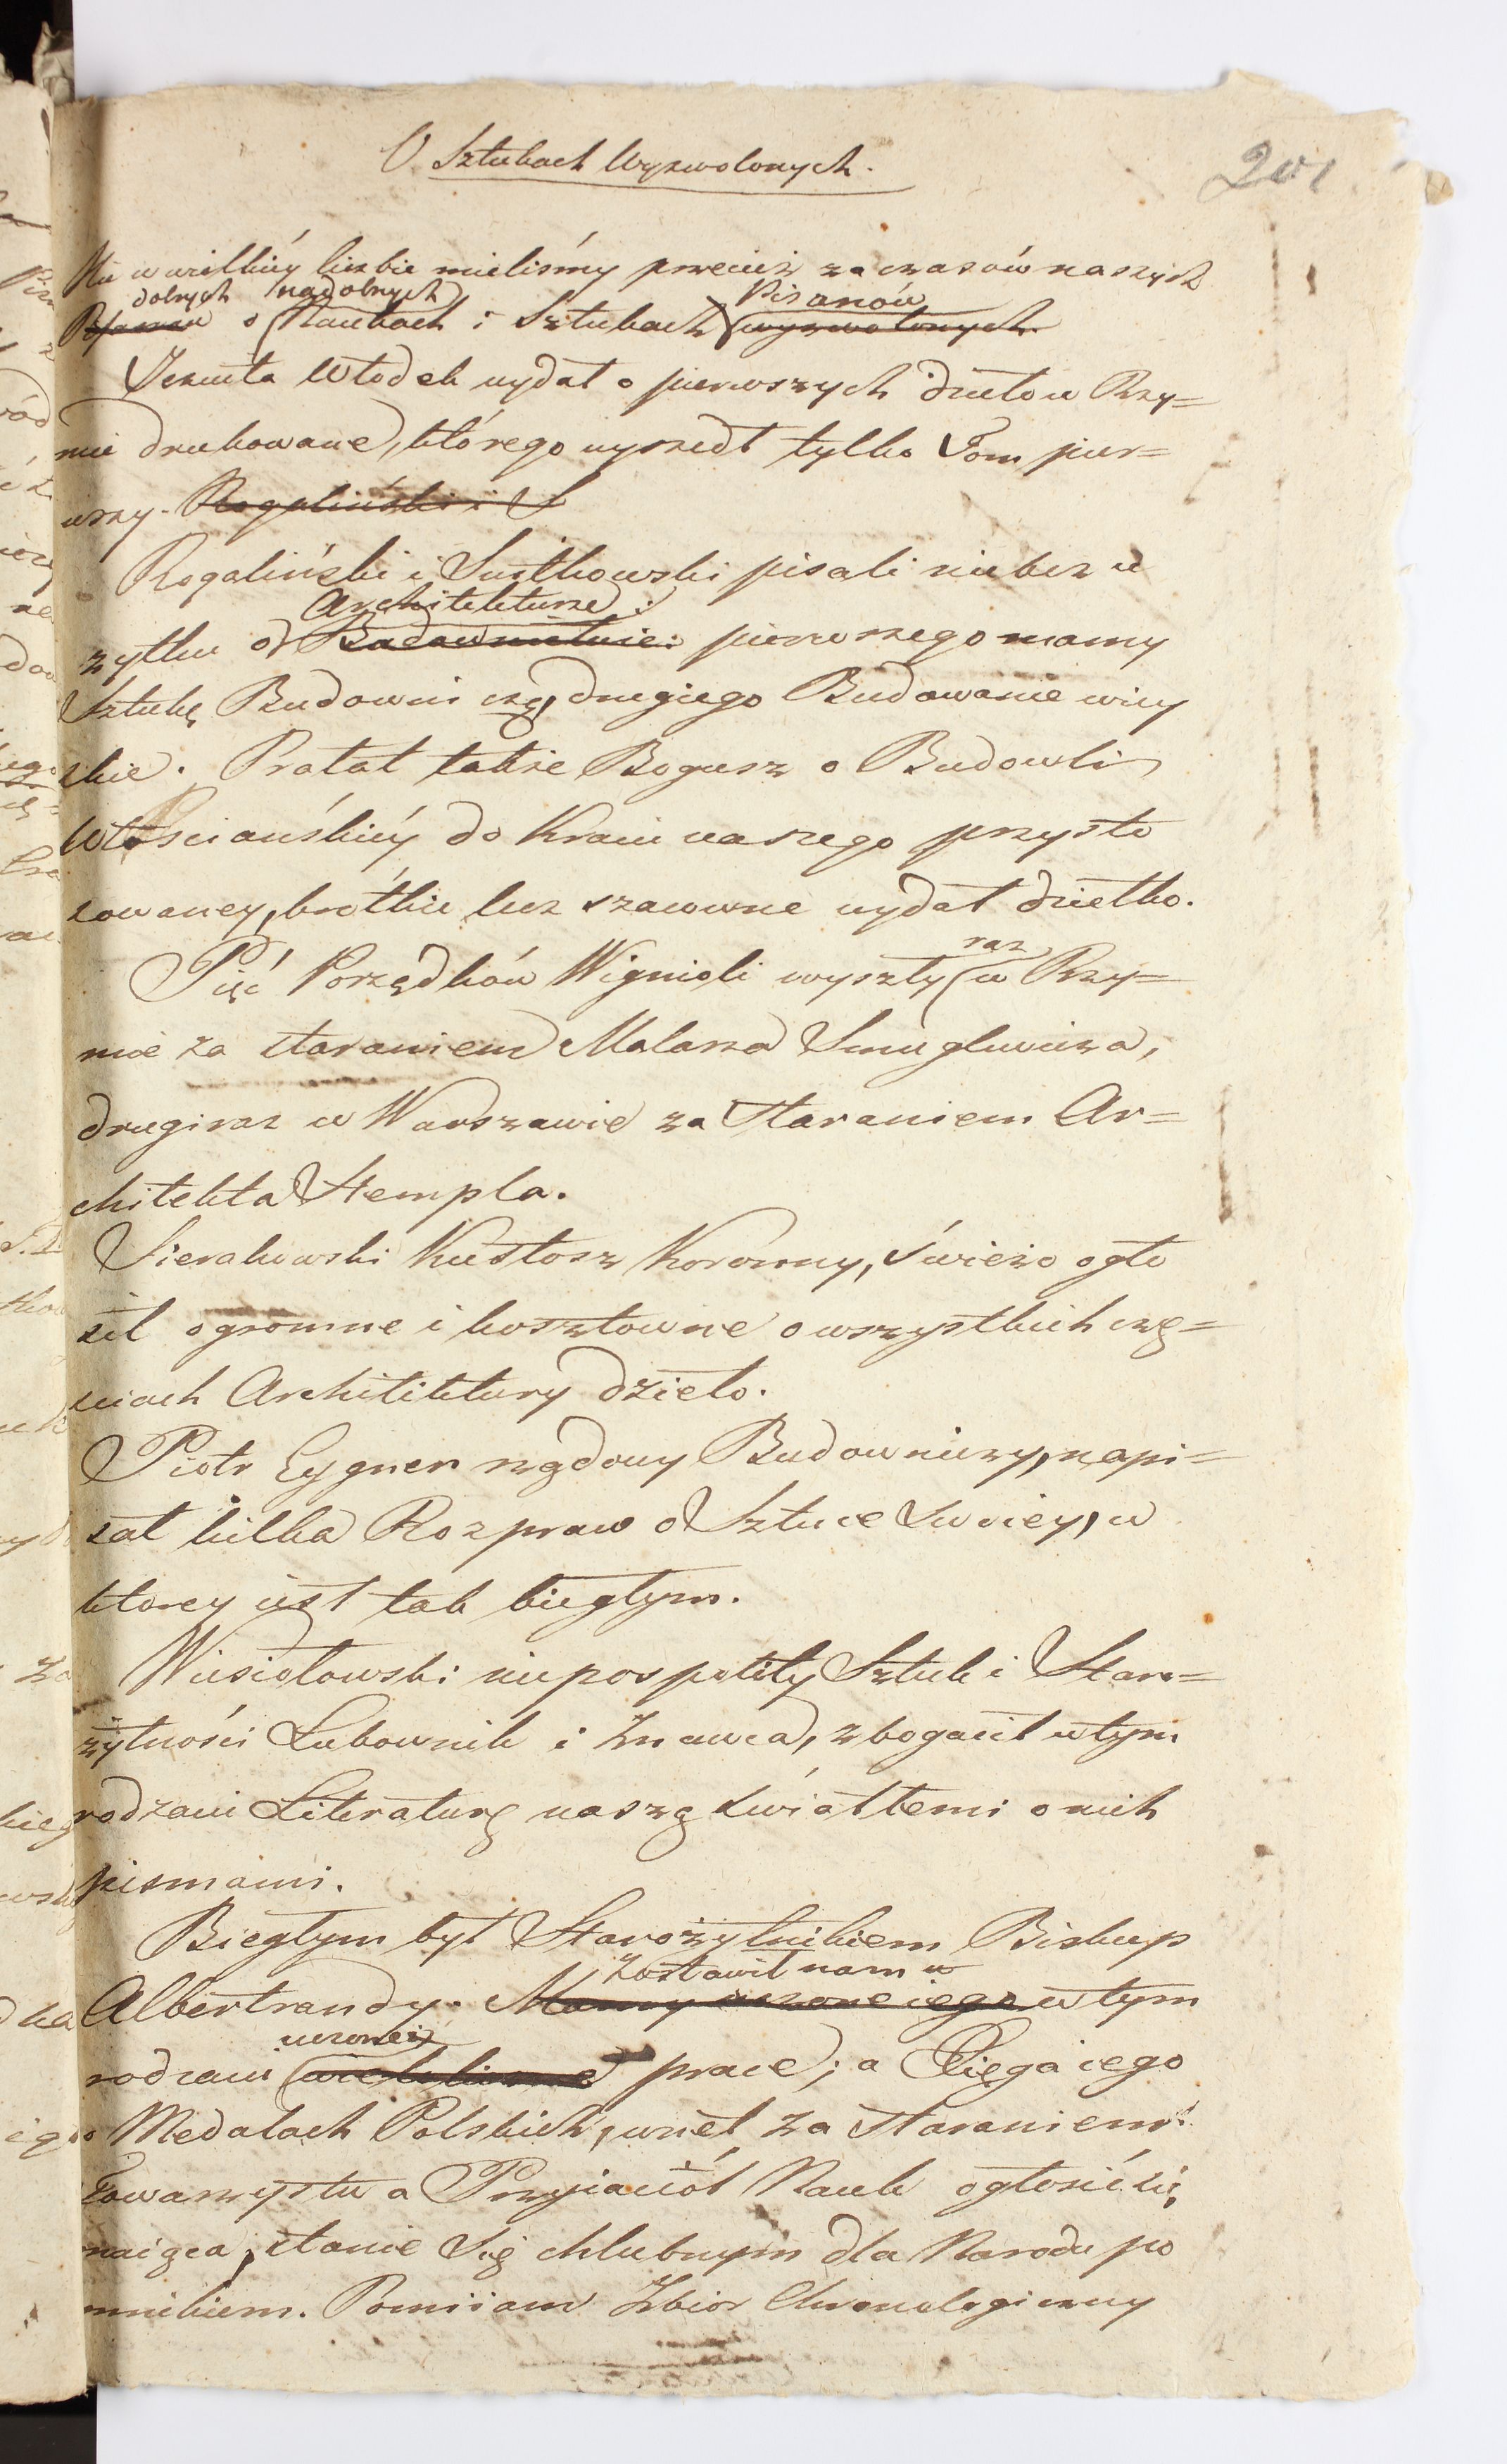 O Sztukach Wyzwolonych.
201
Nie w wielkiéy liczbie mieliśmy przecież za czasów naszych
dobrych nadobnych Pisarzów
o Naukach i Sztukach wyzwolonych
Jezuita Włodek wydał o pierwszych dzieło w Rzy=
mie drukowane, którego wyszedł tylko Tom pier=
wszy. Rogaliński i S
Rogaliński i Świtkowski pisali nie bez u
Architekturze:
żytku o Budownictwie: pierwszego mamy
Sztukę Budowniczą, drugiego Budowanie wiey
skie. Prałat także Bogusz o Budowli
Włościańskiéy do Kraiu naszego przysto
sowaney, krótkie lecz szacowne wydał dziełko.
raz
Pięć Porządków Wignioli wyszły w Rzy=
mie za staraniem Malarza Smuglewicza,
drugi raz w Warszawie za staraniem Ar=
chitekta Hempla.
Sierakowski Kustosz Koronny, świeżo ogło
sił ogromne i kosztowne o wszystkich czę=
sciach Architektury dzieło.
Piotr Eygner rządowy Budowniczy, napi=
sał kilka Rozpraw o Sztuce swoiey, w
ktorey iest tak biegłym.
Wiesiołowski niepospolity Sztuk i Staro=
żytności Lubownik i Znawca, zbogacił w tym
rodzaiu Literaturę naszą światłemi o nich
pismami.
Biegłym był Starożytnikiem Biskup
zostawił nam w
Albertrandy. Mamy uczone iego w tym
uczonei
rodzaiu prace; a Xięga iego
o Medalach Polskich, wnet za staraniem
Towarzystwa Przyiaciół Nauk ogłosić się
maiąca, stanie się chlubnym dla Narodu po
mnikiem. Pomiiam Zbior Chronologiczny